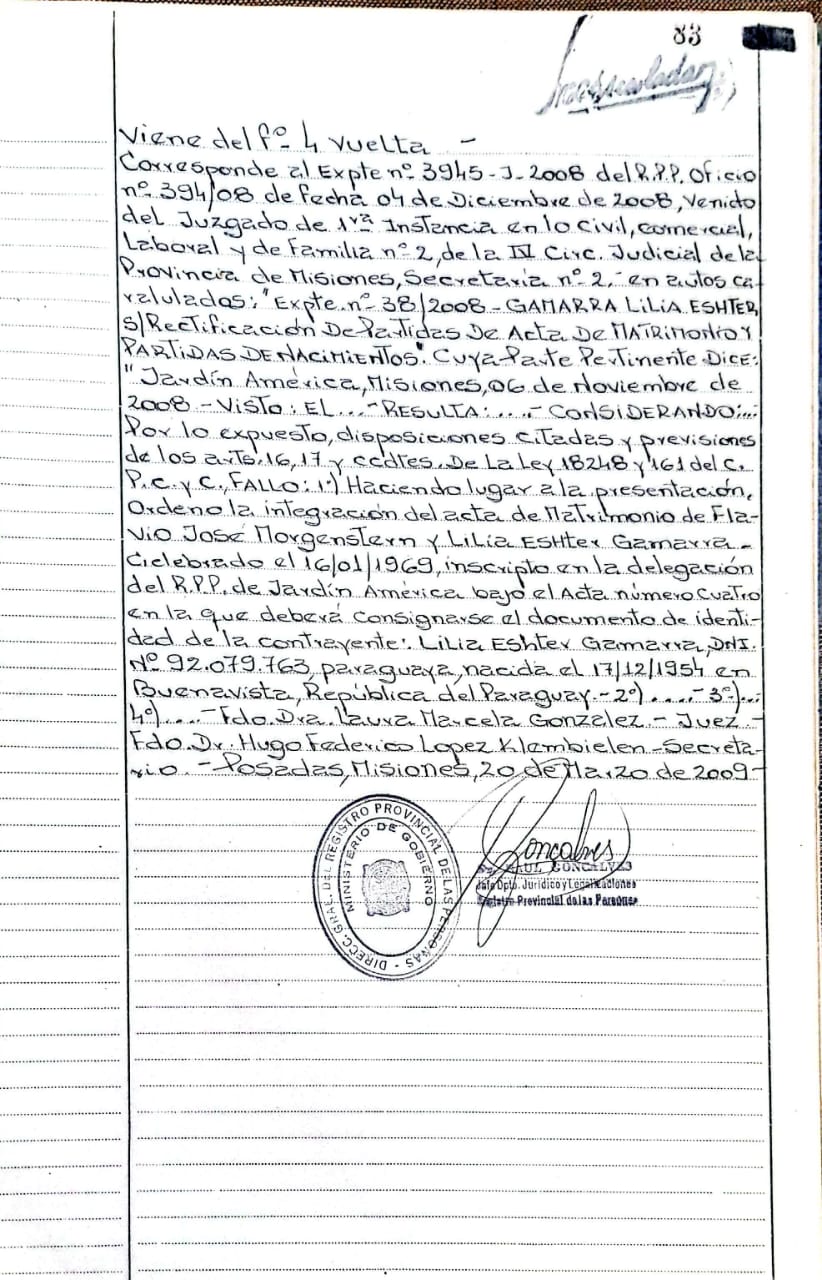 83
Viene del fº 4 vuelta —
Corresponde al Expte nº 3945-J-2008 del R.P.P. Oficio
nº 394/08 de fecha 04 de Diciembre de 2008, Venido
del Juzgado de 1ra Instancia en lo Civil, comercial,
Laboral y de Familia nº 2, de la IV Circ. Judicial de la
Provincia de Misiones, Secretaria nº 2.- en autos ca-
ralulados: "Expte. nº 38/2008 - GAMARRA LiLiA ESHTER
S/Rectificación De Partidas De Acta De MATRIMONIO Y
PARTIDAS DE NACIMIENTOS". Cuya Parte Pertinente Dice:
"Jardín América, Misiones, 06 de Noviembre de
2008 - Visto: EL...- RESULTA:....- CONSIDERANDO:...
Por lo expuesto, disposiciones citadas y previsiones
de los arts. 16, 17 y ccdtes. De La Ley 18248 y 161 del C.
P.C. y C., FALLO: 1º) Haciendo lugar a la presentación,
Ordeno la integración del acta de Matrimonio de Fla-
vio José Morgenstern y LiLiA ESHter Gamarra -
Celebrado el 16/01/1969, inscripto en la delegación
del R.P.P. de Jardín América bajo el Acta número Cuatro
en la que deberá consignarse el documento de identi-
dad de la contrayente: LiLiA Eshter Gamarra, DNI.
Nº 92.079.763, paraguaya, nacida el 17/12/1954 en
Buenavista, República del Paraguay.- 2º).....- 3º)...
4º)....- Fdo. Dra. Laura Marcela Gonzalez.- Juez.-
Fdo. Dr. Hugo Federico Lopez Klembielen - Secreta-
rio.- Posadas, Misiones, 20 de Marzo de 2009-
DIRECC. GRAL. DEL REGISTRO PROVINCIAL DE LAS PERSONAS -
MINISTERIO DE GOBIERNO
Goncalves
RAUL GONCALVES
Jefe Dpto. Jurídico y Legalizaciones
Registro Provincial de las Personas